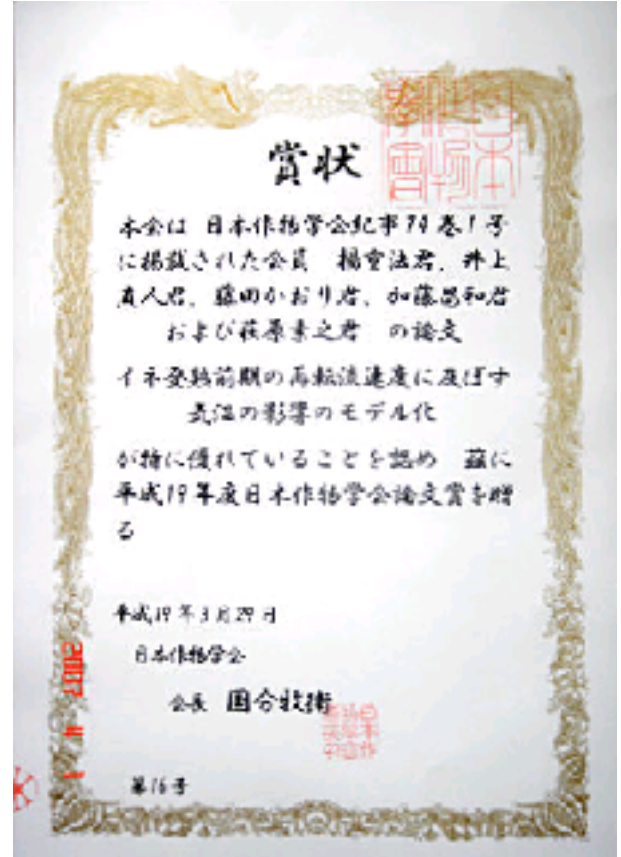 賞状
本会は 日本作物学会紀事74巻1号
に掲載された会員 楊重法君、井上
直人君、藤田かおり君、加藤昌和君
および萩原素之君 の論文
イネ登熟前期の再転流速度に及ぼす
気温の影響のモデル化
が特に優れていることを認め 茲に
平成19年度日本作物学会論文賞を贈
る
平成19年3月29日
日本作物学会
会長 国分牧衛
第16号
2007 4 1